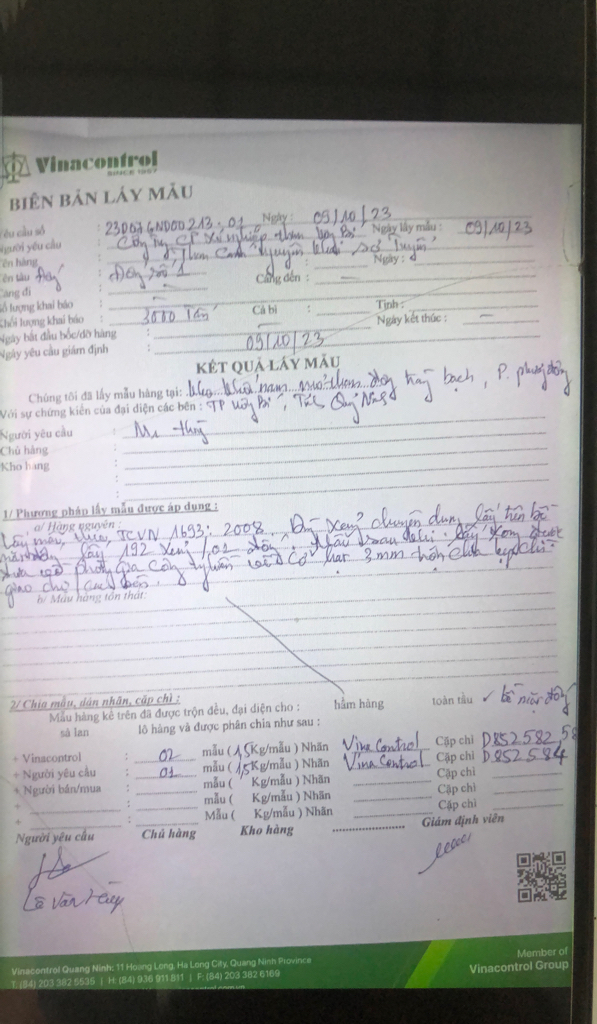 Vinacontrol
SINCE 1957
BIÊN BẢN LẤY MẪU
Yêu cầu số : 23D07GND00213-01 Ngày : 09/10/23
Người yêu cầu : Công ty CP Xí nghiệp than Uông Bí Ngày lấy mẫu : 09/10/23
Tên hàng : Than Cám nguyên khai sơ tuyển
Tên tàu Đống : Đống số 1 Ngày :
Cảng đi : Cảng đến :
Số lượng khai báo :
Khối lượng khai báo : 3000 Tấn Cả bì : Tịnh :
Ngày bắt đầu bốc/dỡ hàng : Ngày kết thúc :
Ngày yêu cầu giám định : 09/10/23
KẾT QUẢ LẤY MẪU
Chúng tôi đã lấy mẫu hàng tại: Kho than đông tràng bạch, P. phương đông
Với sự chứng kiến của đại diện các bên : TP Uông Bí, Tỉnh Quảng Ninh
Người yêu cầu : Mr
Chủ hàng :
Kho hàng :
1/ Phương pháp lấy mẫu được áp dụng :
a/ Hàng nguyên :
Lấy mẫu TCVN 1693: 2008. Dùng xẻng chuyên dụng lấy trên bề
mặt đống, lấy 192 xẻng / 01 đống. Mẫu sau khi lấy xong được
đưa về phòng gia công nghiền về cỡ hạt 3mm trộn chia kẹp chì
giao cho các bên.
b/ Mẫu hàng tổn thất:
2/ Chia mẫu, dán nhãn, cặp chì :
Mẫu hàng kể trên đã được trộn đều, đại diện cho : hầm hàng toàn tầu ✓ bề mặt đống
sà lan lô hàng và được phân chia như sau :
+ Vinacontrol : 02 mẫu ( 1,5Kg/mẫu ) Nhãn VinaControl Cặp chì D852582 58
+ Người yêu cầu : 01 mẫu ( 1,5Kg/mẫu ) Nhãn VinaControl Cặp chì D852584
+ Người bán/mua : mẫu ( Kg/mẫu ) Nhãn Cặp chì
+ : mẫu ( Kg/mẫu ) Nhãn Cặp chì
+ : Mẫu ( Kg/mẫu ) Nhãn Cặp chì
Người yêu cầu Chủ hàng Kho hàng Giám định viên
Lê Văn
Vinacontrol Quang Ninh: 11 Hoang Long, Ha Long City, Quang Ninh Province
T: (84) 203 382 5535 | H: (84) 936 911 811 | F: (84) 203 382 6169
Member of
Vinacontrol Group